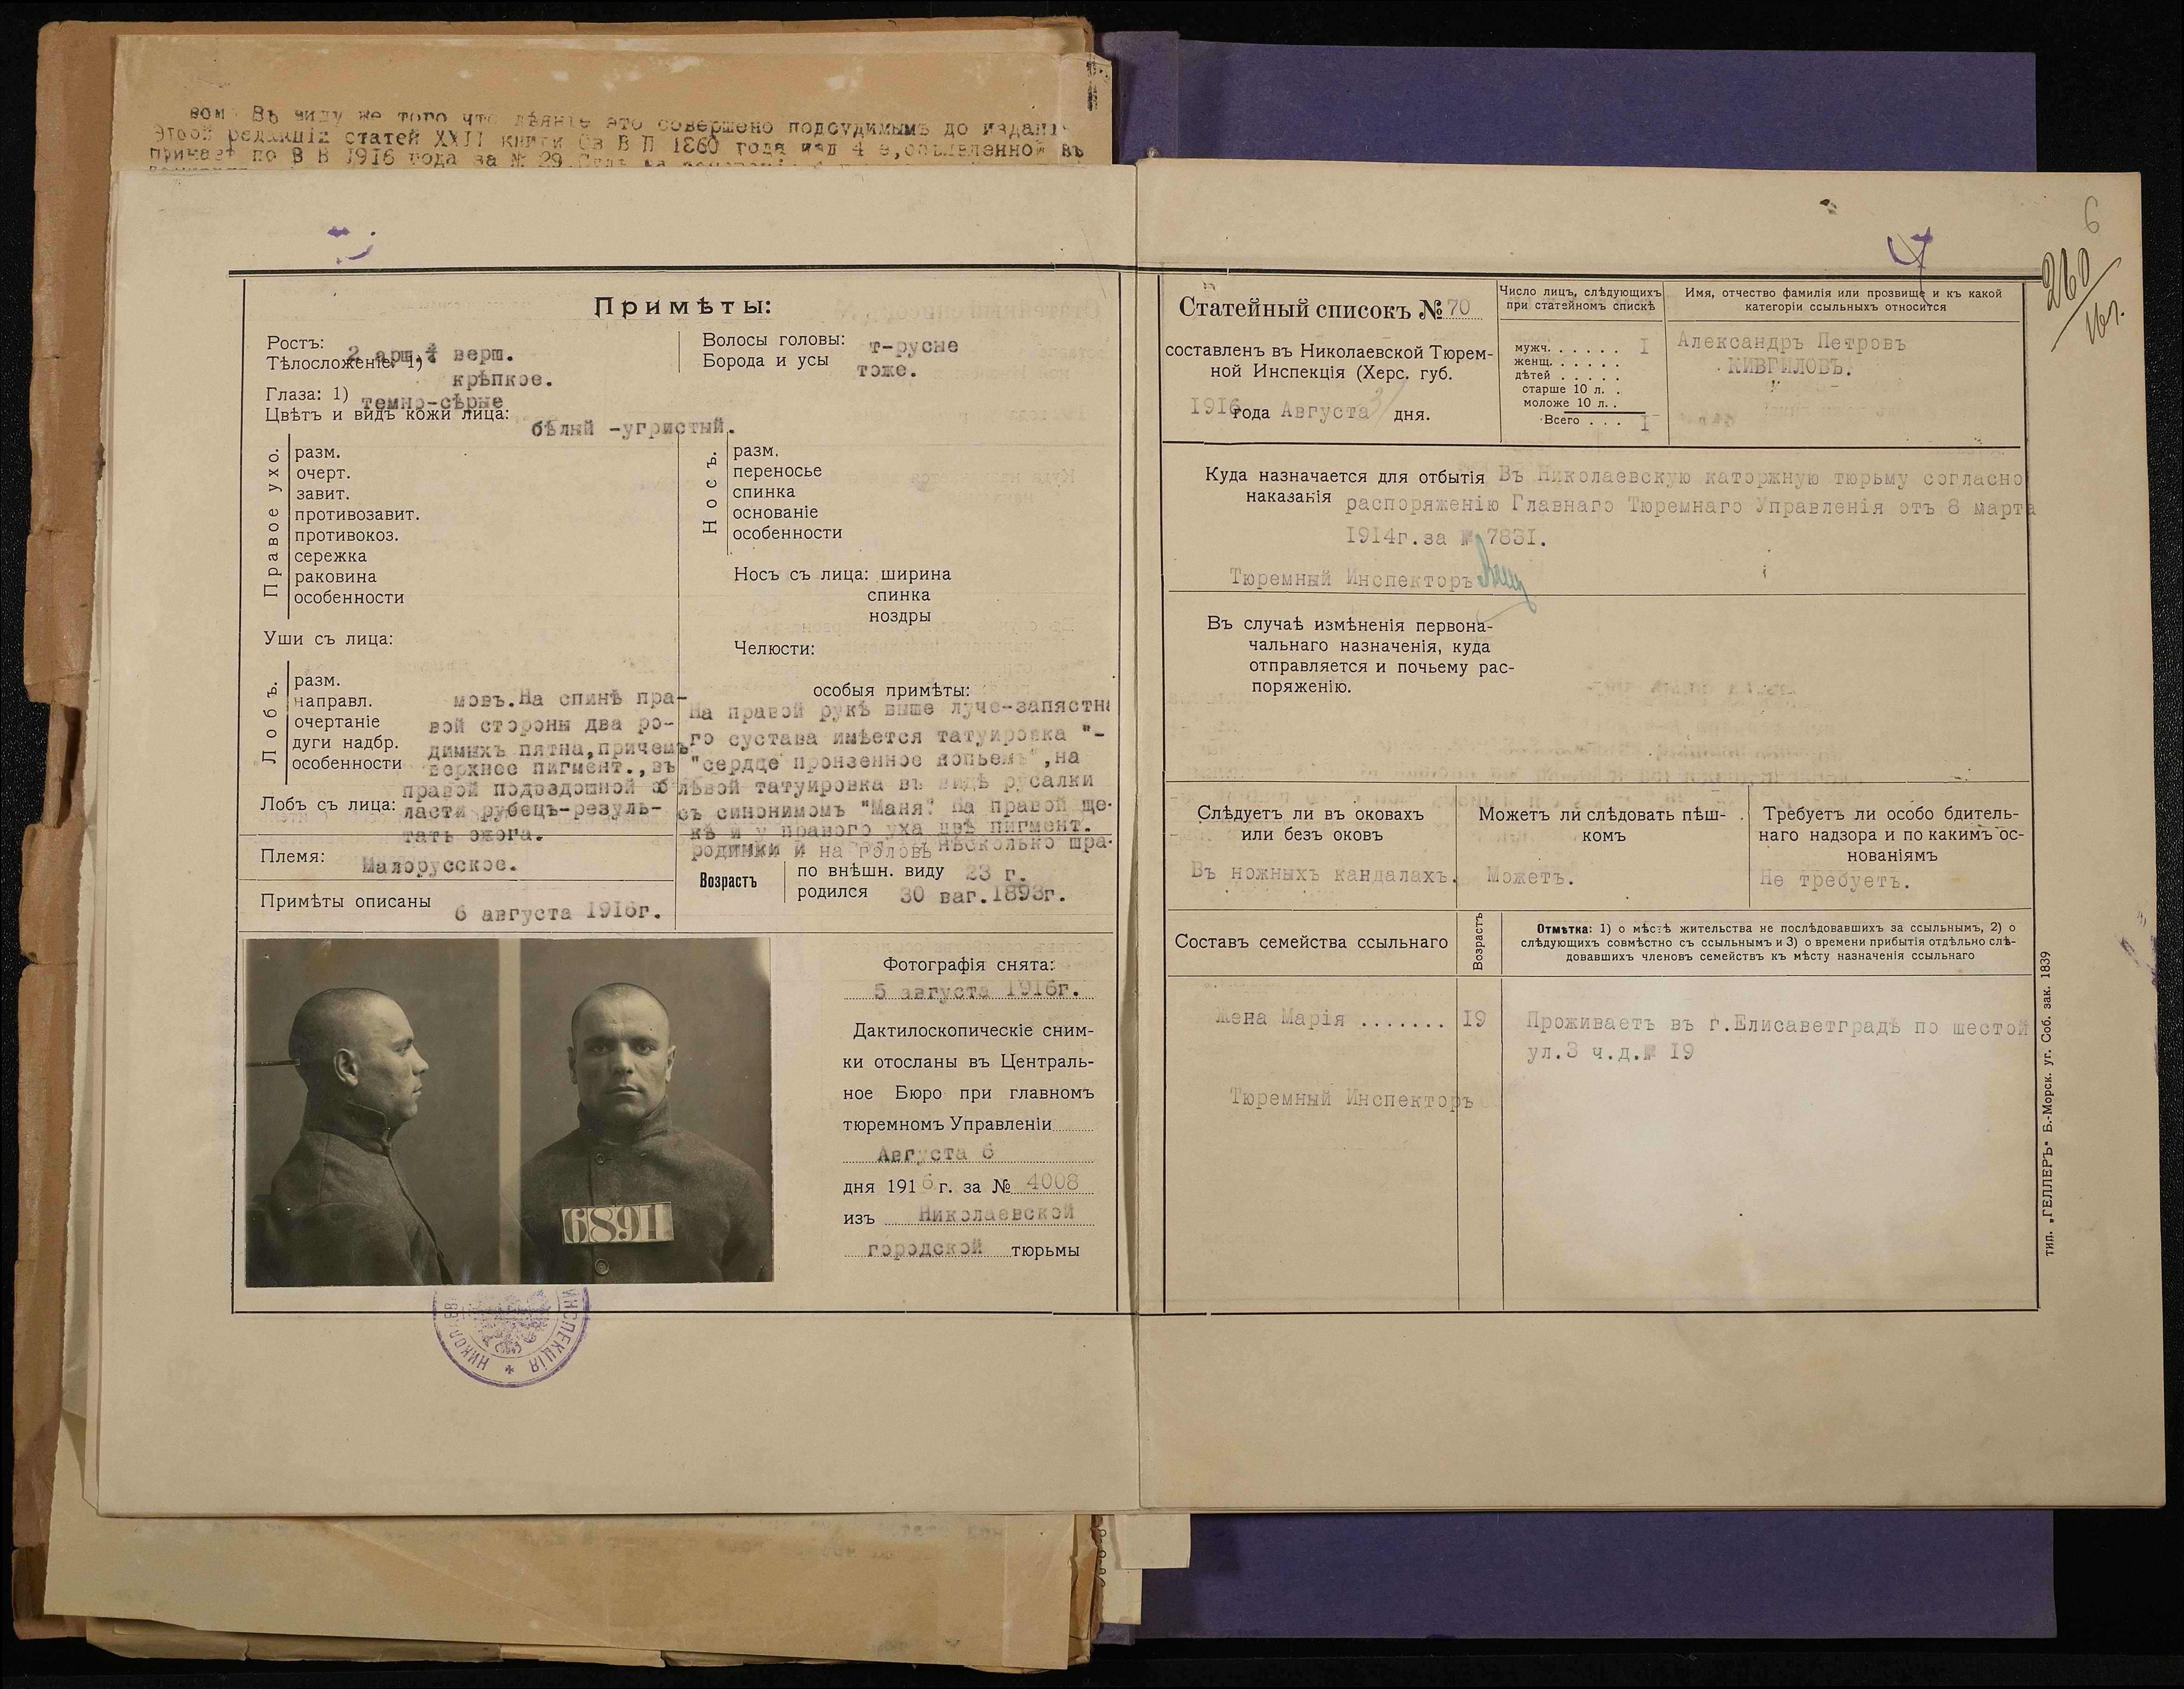 вом Въ виду же того что дѣяніе это совершено подсудимымъ до изданія
этой редакціи статей XXII книги Св В П 1860 года изд 4 е, объявленной въ
приказѣ по В В 1916 года за № 29.
Примѣты:
Ростъ: 2 арш. верш.
Тѣлосложеніе: 1) крѣпкое.
Глаза: 1) темно-сѣрые
Цвѣтъ и видъ кожи лица: бѣлый -угристый.
Волосы головы: т-русые
Борода и усы тоже.
Правое ухо.
разм.
очерт.
завит.
противозавит.
противокоз.
сережка
раковина
особенности
Носъ.
разм.
переносье
спинка
основаніе
особенности
Носъ съ лица: ширина
спинка
ноздры
Уши съ лица:
Челюсти:
Лобъ.
разм.
направл.
очертаніе
дуги надбр.
особенности
Лобъ съ лица:
особыя примѣты:
На правой рукѣ выше луче-запястна
го сустава имѣется татуировка "-
"сердце пронзенное копьемъ", на
лѣвой татуировка въ видѣ русалки
съ синонимомъ "Маня". На правой ще-
кѣ и у праваго уха двѣ пигмент.
родимки и на головѣ нѣсколько шра-
мовъ. На спинѣ пра-
вой стороны два ро-
димыхъ пятна, причемъ
верхнее пигмент., въ
правой подвздошной об
ласти рубецъ-резуль-
татъ ожога.
Племя: Малорусское.
Примѣты описаны 6 августа 1916г.
Возрастъ
по внѣшн. виду 23 г.
родился 30 ваг. 1893г.
Фотографія снята:
5 августа 1916г.
Дактилоскопическіе сним-
ки отосланы въ Централь-
ное Бюро при главномъ
тюремномъ Управленіи
Августа 6
дня 1916 г. за № 4008
изъ Николаевской
городской тюрьмы
6891
НИКОЛАЕВ ИНСПЕКЦІЯ
6
260
16г.
Статейный списокъ № 70
составленъ въ Николаевской Тюрем-
ной Инспекція (Херс. губ.
1916 года Августа 31 дня.
Число лицъ, слѣдующихъ
при статейномъ спискѣ
мужч. . . . . . . I
женщ. . . . . . .
дѣтей . . . . .
старше 10 л. . .
моложе 10 л. . .
Всего . . . I
Имя, отчество фамилія или прозвище и къ какой
категоріи ссыльныхъ относится
Александръ Петровъ
КИВГИЛОВЪ.
Куда назначается для отбытія наказанія Въ Николаевскую каторжную тюрьму согласно
распоряженію Главнаго Тюремнаго Управленія отъ 8 марта
1914г. за № 7831.
Тюремный Инспекторъ
Въ случаѣ измѣненія первона-
чальнаго назначенія, куда
отправляется и почьему рас-
поряженію.
Слѣдуетъ ли въ оковахъ
или безъ оковъ
Въ ножныхъ кандалахъ.
Можетъ ли слѣдовать пѣш-
комъ
Можетъ.
Требуетъ ли особо бдитель-
наго надзора и по какимъ ос-
нованіямъ
Не требуетъ.
Составъ семейства ссыльнаго
Возрастъ
Отмѣтка: 1) о мѣстѣ жительства не послѣдовавшихъ за ссыльнымъ, 2) о
слѣдующихъ совмѣстно съ ссыльнымъ и 3) о времени прибытія отдѣльно слѣ-
довавшихъ членовъ семействъ къ мѣсту назначенія ссыльнаго
Жена Марія ....... 19
Проживаетъ въ г.Елисаветградѣ по шестой
ул.3 ч.д.№ 19
Тюремный Инспекторъ
тип. „ГЕЛЛЕРЪ" Б.-Морск. уг. Соб. зак. 1839